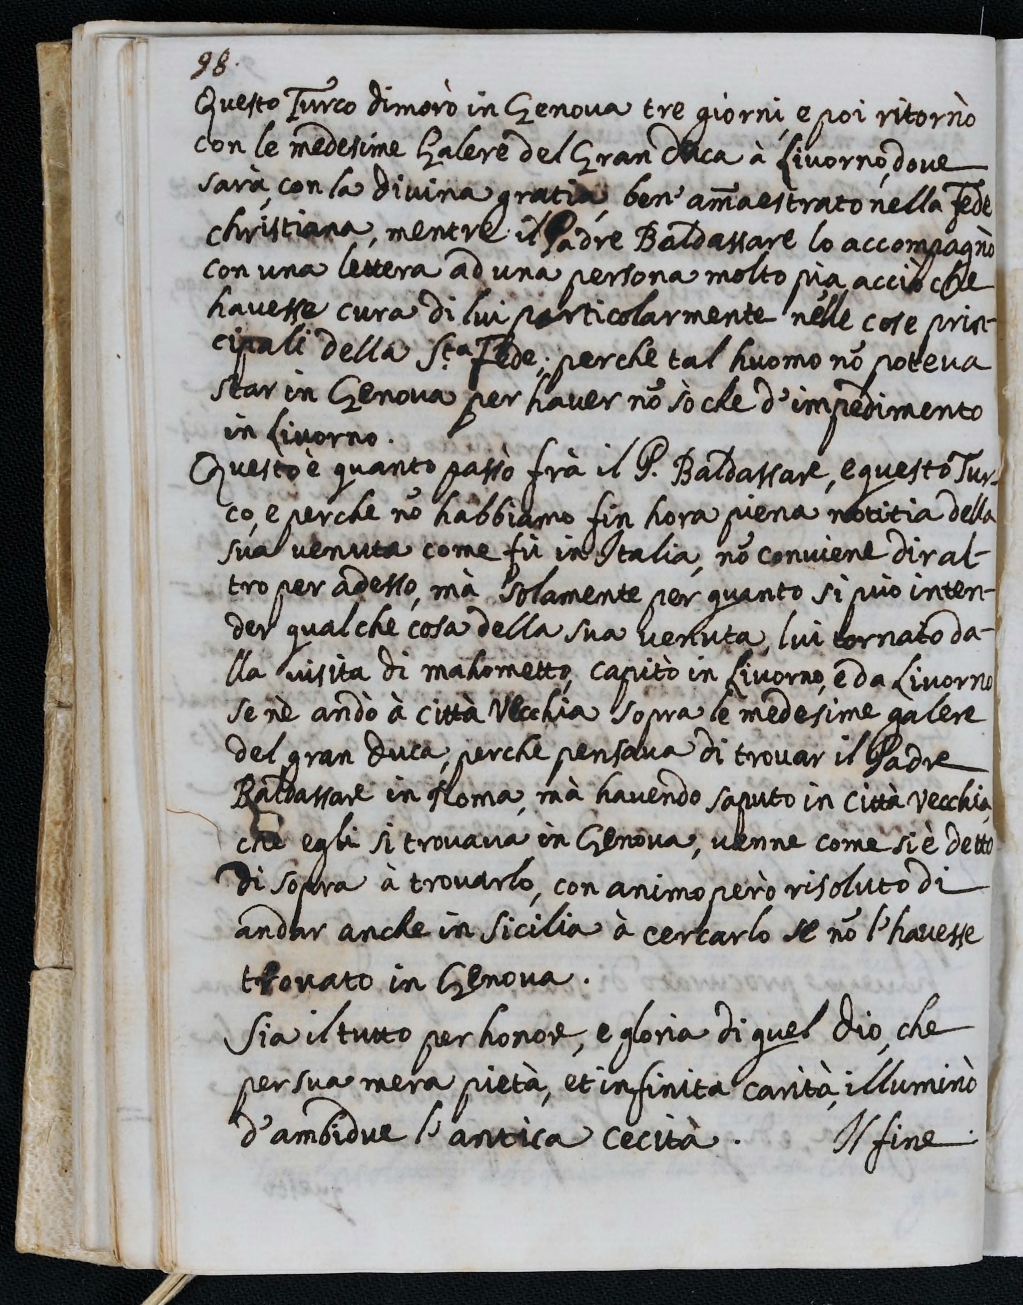 98.
Questo Turco dimorò in Genova tre giorni, e poi ritornò
con le medesime Galere del Gran Duca à Livorno, dove
sarà, con la divina gratia, ben' am̃aestrato nella Fede
christiana, mentre il Padre Baldassare lo accompagnò
con una lettera ad una persona molto pia, acciò che
havesse cura di lui particolarmente nelle cose prin-
cipali della S.ta Fede; perche tal huomo nõ poteva
star in Genova per haver nõ sò che d'impedimento
in Livorno.
Questo è quanto passò frà il P. Baldassare, e questo Tur-
co, e perche nõ habbiamo fin hora piena notitia della
sua venuta come fù in Italia, nõ conviene dir al-
tro per adesso, mà solamente per quanto si può inten-
der qualche cosa della sua venuta, lui tornato da-
lla visita di mahometto, capitò in Livorno, e da Livorno
se nè andò à Città Vecchia sopra le medesime galere
del gran Duca, perche pensava di trovar il Padre
Baldassare in Roma, mà havendo saputo in Città Vecchia,
che egli si trovava in Genova, venne come si è detto
di sopra à trovarlo, con animo però risoluto di
andar anche in Sicilia à cercarlo se nõ l'havesse
trovato in Genova.
Sia il tutto per honore, e gloria di quel Dio, che
per sua mera pietà, et infinita carità, illuminò
d'ambidue l'antica cecità. Il fine.